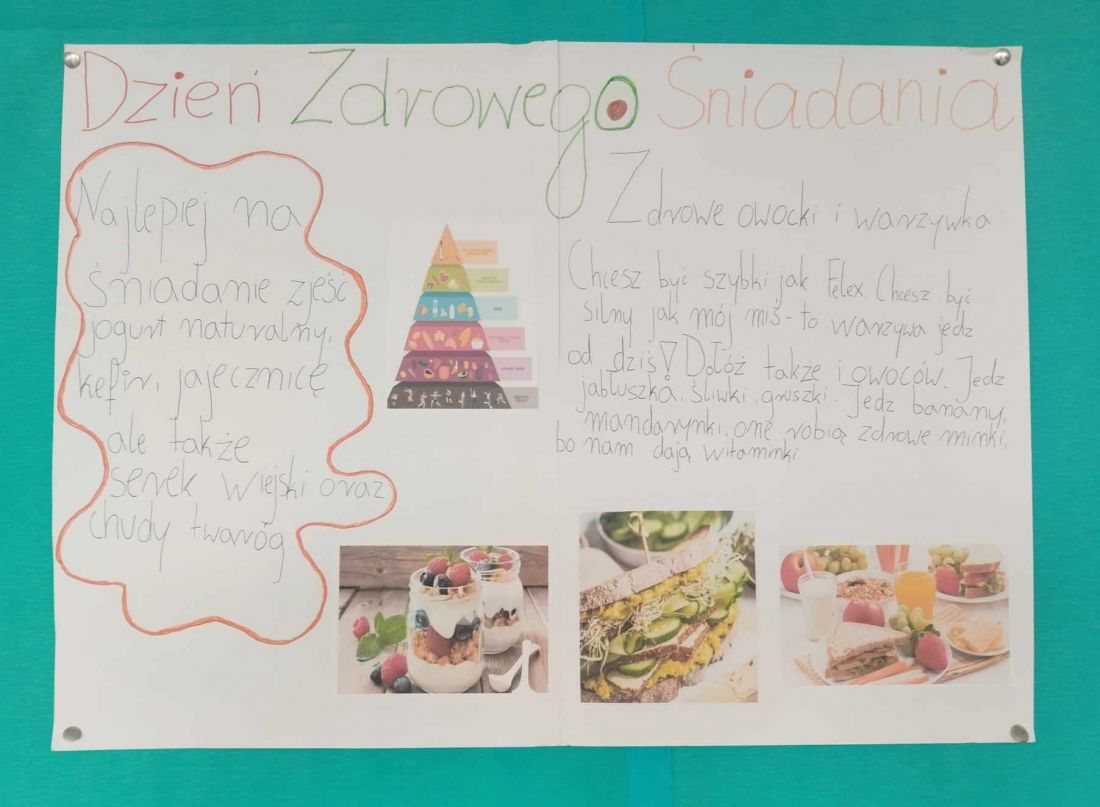 Dzień Zdrowego Śniadania
Najlepiej na
śniadanie zjeść
jogurt naturalny,
kefir, jajecznicę
ale także
serek wiejski oraz
chudy twaróg
Zdrowe owocki i warzywka
Chcesz być szybki jak Felex. Chcesz być
silny jak mój miś - to warzywa jedz
od dziś! Dołóż także i owoców. Jedz
jabłuszka, śliwki, gruszki. Jedz banany,
mandarynki, one robią zdrowe minki,
bo nam dają witaminki